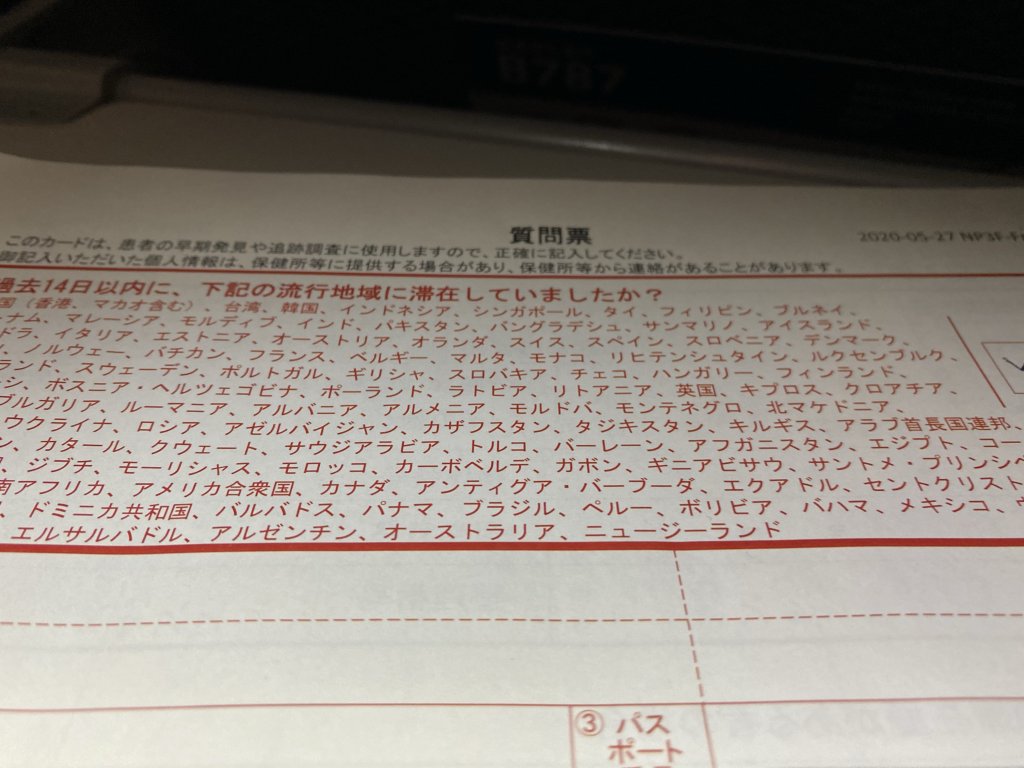 B787
質問票
2020-05-27 NP3F-F
このカードは、患者の早期発見や追跡調査に使用しますので、正確に記入してください。
御記入いただいた個人情報は、保健所等に提供する場合があり、保健所等から連絡があることがあります。
過去14日以内に、下記の流行地域に滞在していましたか？
国（香港、マカオ含む）、台湾、韓国、インドネシア、シンガポール、タイ、フィリピン、ブルネイ、
ナム、マレーシア、モルディブ、インド、パキスタン、バングラデシュ、サンマリノ、アイスランド、
ドラ、イタリア、エストニア、オーストリア、オランダ、スイス、スペイン、スロベニア、デンマーク、
、ノルウェー、バチカン、フランス、ベルギー、マルタ、モナコ、リヒテンシュタイン、ルクセンブルク、
ランド、スウェーデン、ポルトガル、ギリシャ、スロバキア、チェコ、ハンガリー、フィンランド、
シ、ボスニア・ヘルツェゴビナ、ポーランド、ラトビア、リトアニア、英国、キプロス、クロアチア、
ブルガリア、ルーマニア、アルバニア、アルメニア、モルドバ、モンテネグロ、北マケドニア、
ウクライナ、ロシア、アゼルバイジャン、カザフスタン、タジキスタン、キルギス、アラブ首長国連邦、
ン、カタール、クウェート、サウジアラビア、トルコ、バーレーン、アフガニスタン、エジプト、コー
、ジブチ、モーリシャス、モロッコ、カーボベルデ、ガボン、ギニアビサウ、サントメ・プリンシペ
南アフリカ、アメリカ合衆国、カナダ、アンティグア・バーブーダ、エクアドル、セントクリスト
、ドミニカ共和国、バルバドス、パナマ、ブラジル、ペルー、ボリビア、バハマ、メキシコ、ウ
、エルサルバドル、アルゼンチン、オーストラリア、ニュージーランド
③ パス
ポート